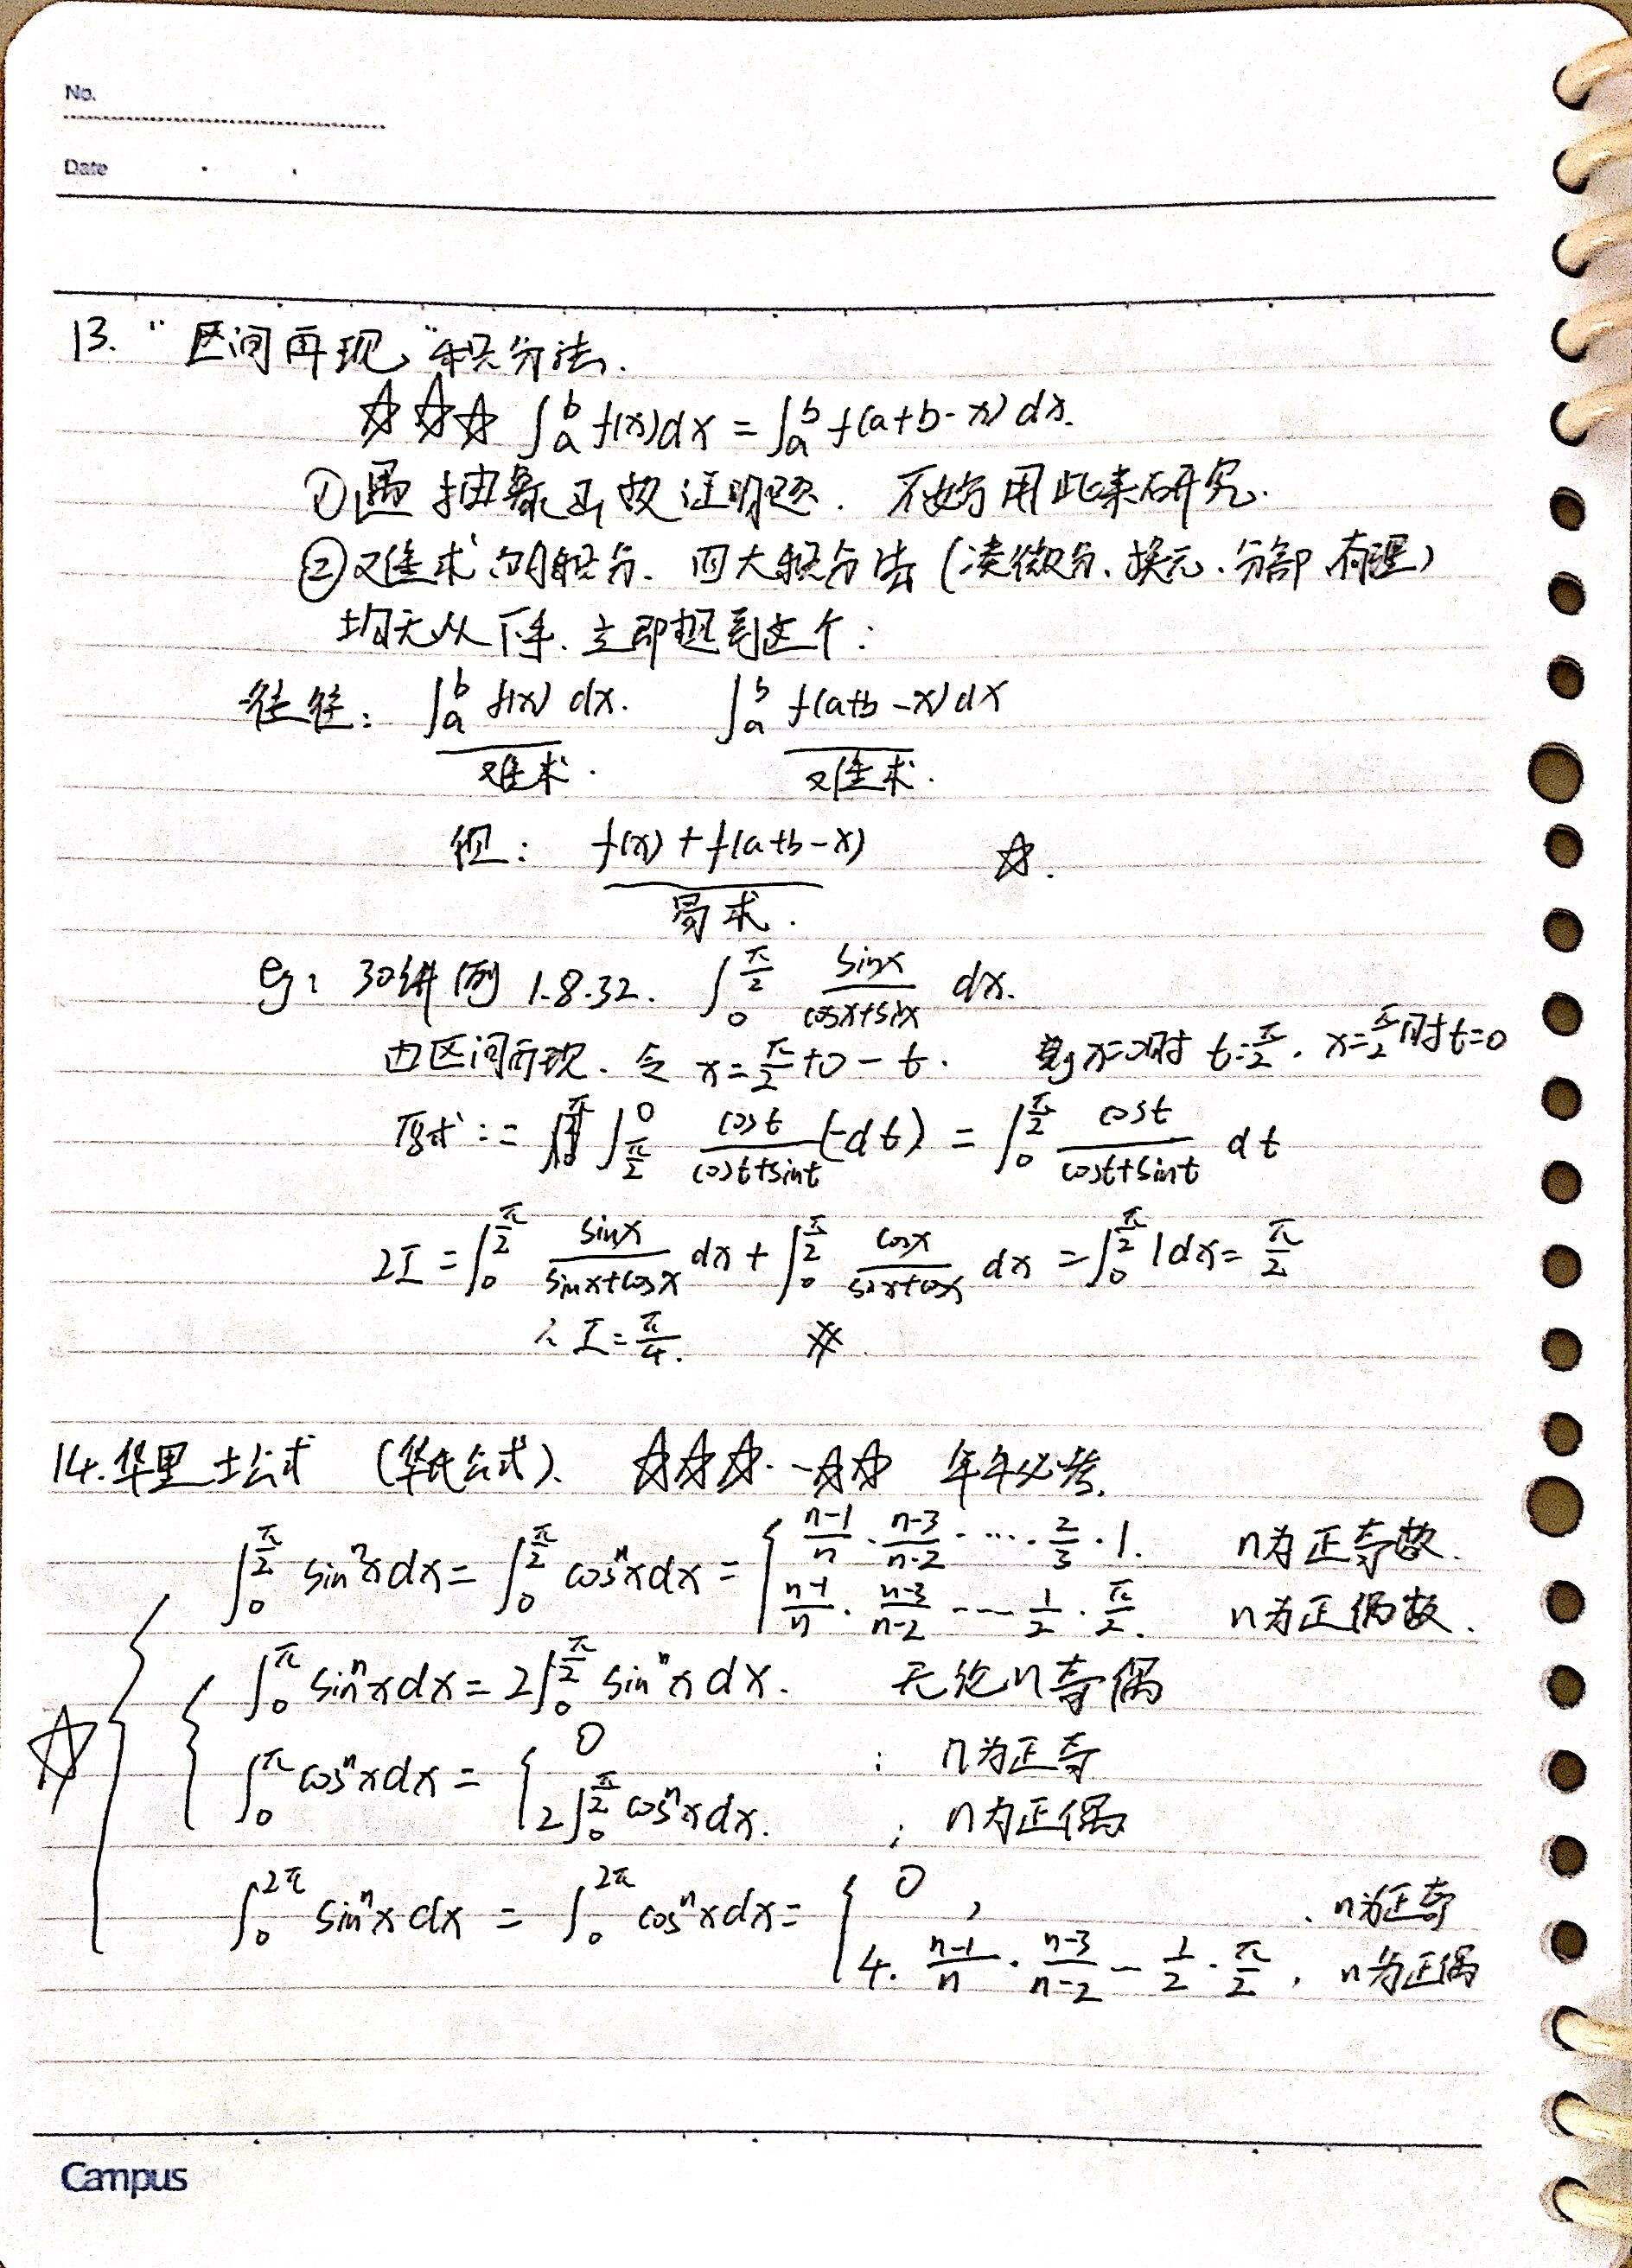 No.
Date
13. “区间再现”积分法.
☆☆☆ ∫_a^b f(x)dx = ∫_a^b f(a+b-x)dx.
①遇抽象函数证明题. 不妨用此来研究.
②难求的积分. 四大积分法(凑微分、换元、分部、有理)
均无从下手. 立即想到这个:
往往: ∫_a^b f(x) dx. ∫_a^b f(a+b-x)dx
难求. 难求.
但: f(x) + f(a+b-x) ☆.
易求.
eg: 30讲例 1.8.32. ∫_0^{π/2} sinx/(cosx+sinx) dx.
由区间再现. 令 x = π/2 + 0 - t. 则 x=0时 t=π/2. x=π/2时 t=0
原式 := ∫_{π/2}^0 cost/(cost+sint) (-dt) = ∫_0^{π/2} cost/(cost+sint) dt
2I = ∫_0^{π/2} sinx/(sinx+cosx) dx + ∫_0^{π/2} cosx/(sinx+cosx) dx = ∫_0^{π/2} 1dx = π/2
∴ I = π/4. ※
14. 华里士公式 (华氏公式). ☆☆☆…☆☆ 年年必考.
∫_0^{π/2} sin^n x dx = ∫_0^{π/2} cos^n x dx = { (n-1)/n · (n-3)/(n-2) · …· 2/3 · 1. n为正奇数.
(n-1)/n · (n-3)/(n-2) … 1/2 · π/2. n为正偶数.
∫_0^π sin^n x dx = 2∫_0^{π/2} sin^n x dx. 无论n奇偶
☆ ∫_0^π cos^n x dx = { 0 ; n为正奇
2∫_0^{π/2} cos^n x dx. ; n为正偶
∫_0^{2π} sin^n x dx = ∫_0^{2π} cos^n x dx = { 0 , n为正奇
4· (n-1)/n · (n-3)/(n-2) … 1/2 · π/2 , n为正偶
Campus